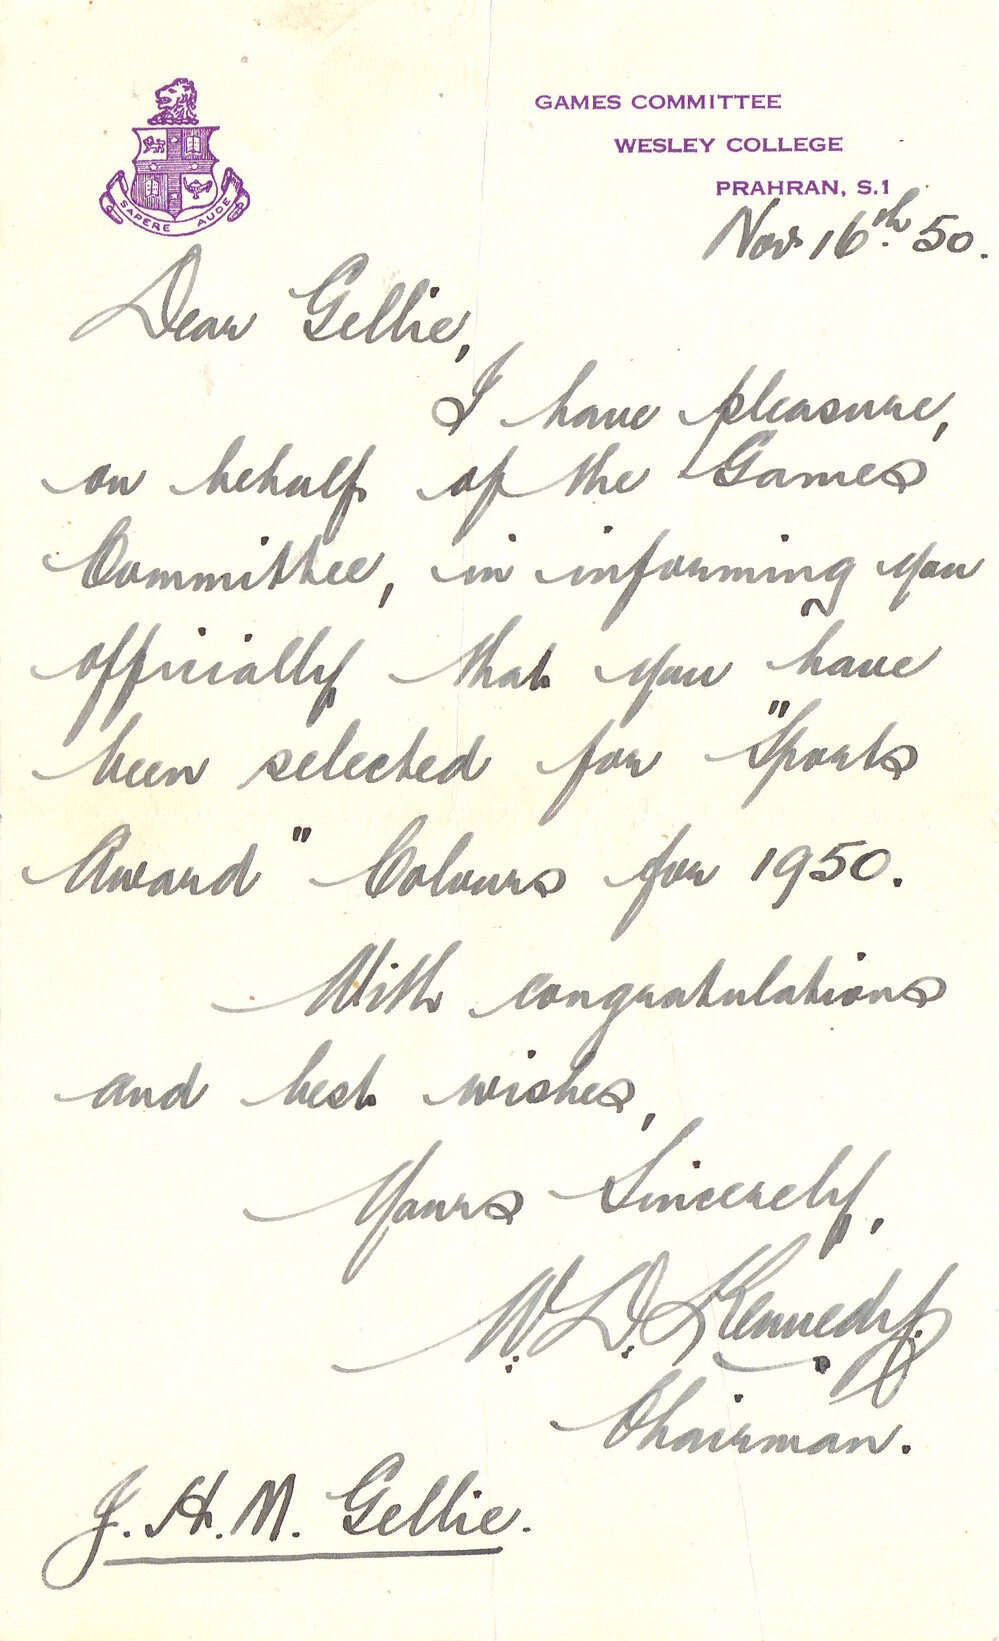 GAMES COMMITTEE
WESLEY COLLEGE
PRAHRAN, S.1
SAPERE AUDE
Nov 16th 50.
Dear Gellie,
I have pleasure,
on behalf of the Games
Committee, in informing you
officially that you have
been selected for "Sports
Award" Colours for 1950.
With congratulations
and best wishes,
Yours Sincerely,
W. D. Kennedy.
Chairman.
J. H. M. Gellie.